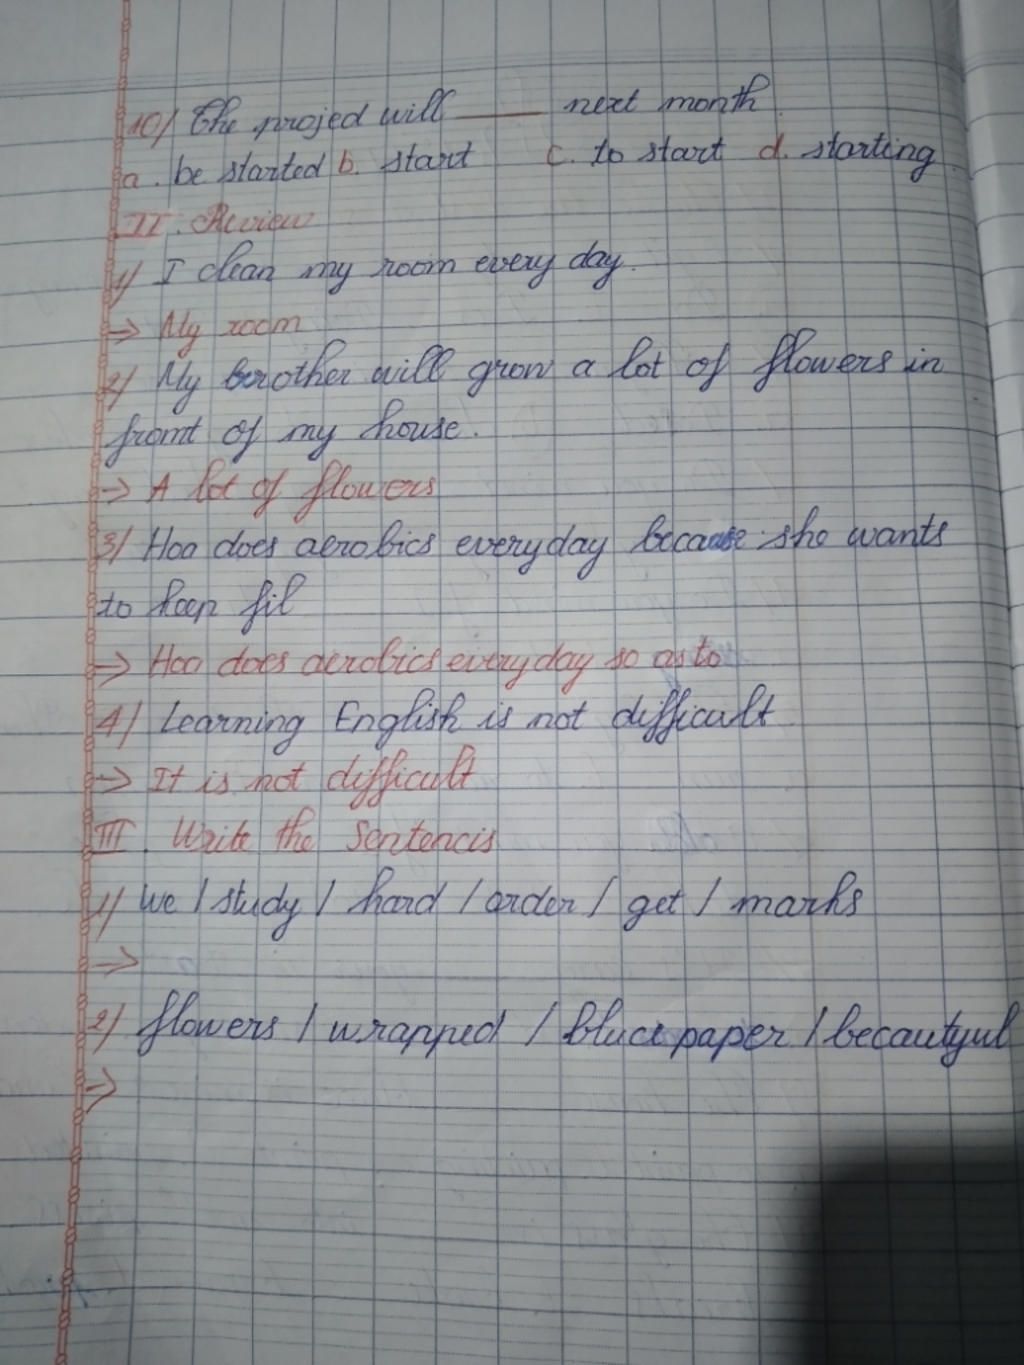 10/ The projed will ____ next month
a. be started b. start c. to start d. starting
II. Review
1/ I clean my room every day.
→ My room
2/ My brother will grow a lot of flowers in
front of my house.
→ A lot of flowers
3/ Hoa does aerobics everyday because she wants
to keep fil
→ Hoa does aerobics everyday so as to
4/ Learning English is not difficult
→ It is not difficult
III. Write the Sentencis
1/ We / study / hard / order / get / marks
→
2/ flowers / wrapped / bluce paper / becautyul
→